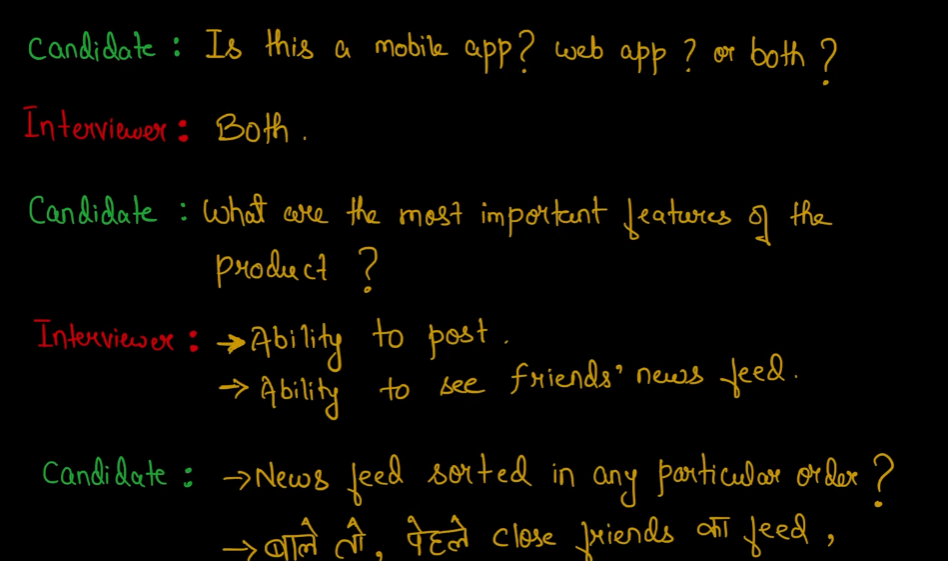 Candidate : Is this a mobile app? web app ? or both ?
Interviewer : Both .
Candidate : What are the most important features of the
product ?
Interviewer : → Ability to post .
→ Ability to see friends' news feed .
Candidate : → News feed sorted in any particular order ?
→ बोले तो, पेहले close friends का feed ,